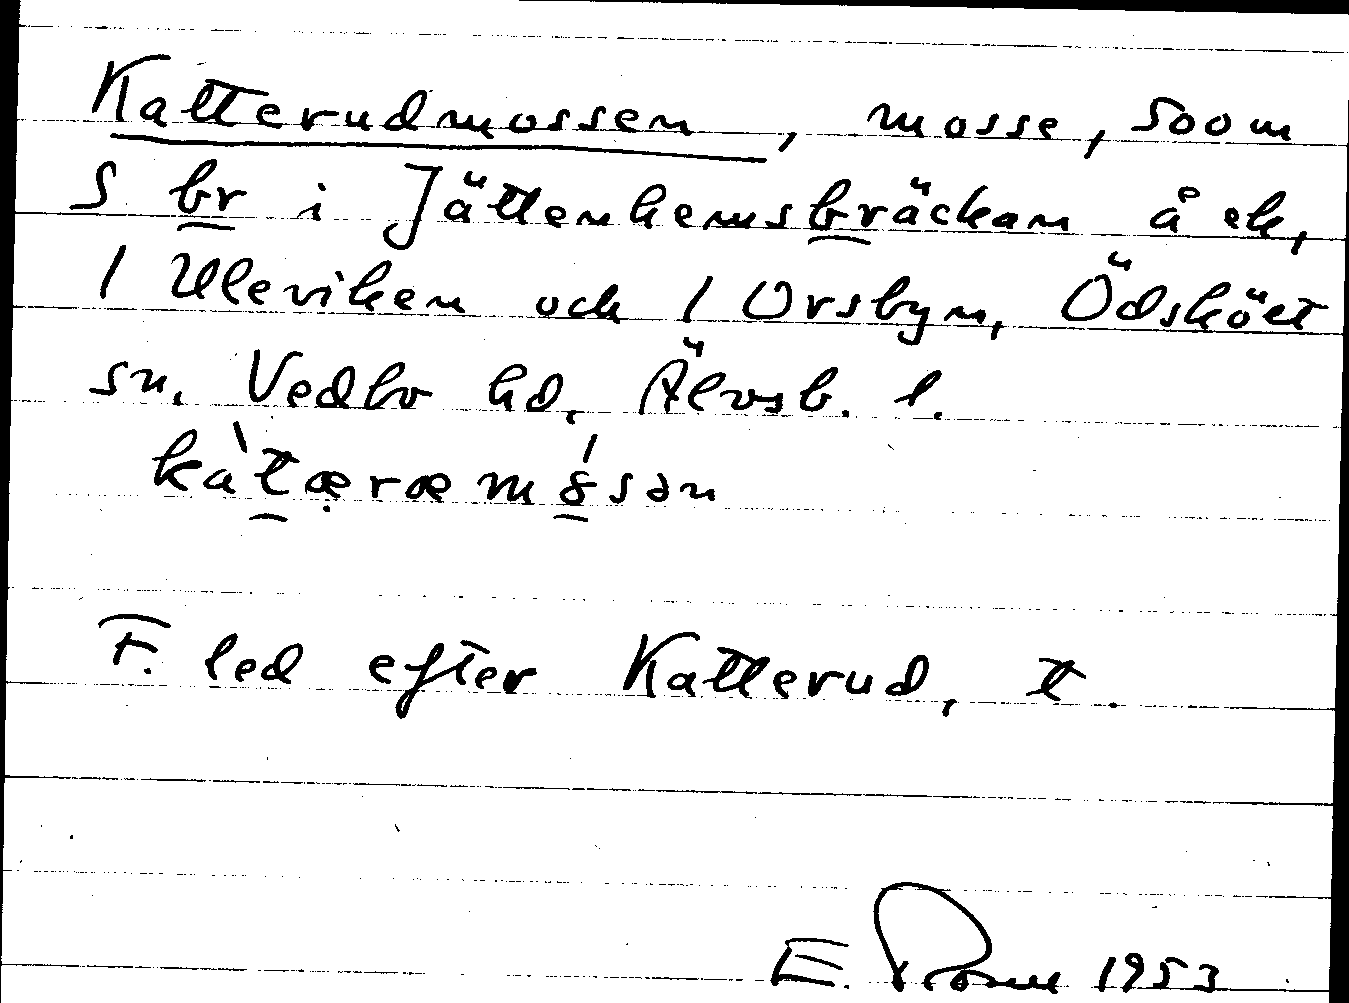 Katterudmossen, mosse, 500 m
S br i Jättenhemsbräckan å ek,
1 Uleviken och 1 Orsbyn, Ödsköct
sn. Vedbo hd, Älvsb. l.
kàtæræmósən
F. led efter Katterud, t.
E. 1953